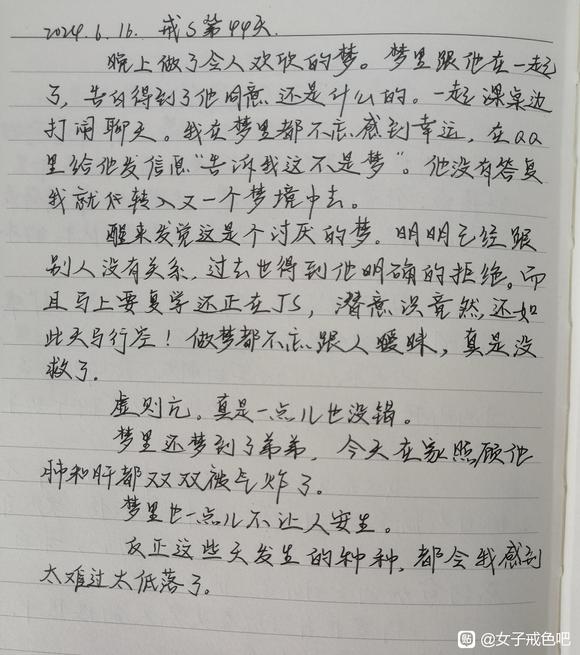 2024.6.16. 戒S第44天.
晚上做了令人欢欣的梦。梦里跟他在一起
了,告白得到了他同意还是什么的。一起课桌边
打闹聊天。我在梦里都不忘感到幸运,在qq
里给他发信息“告诉我这不是梦”。他没有答复
我就又转入又一个梦境中去。
醒来发觉这是个讨厌的梦。明明已经跟
别人没有关系,过去也得到他明确的拒绝。而
且马上要复学还正在JS,潜意识竟然还如
此天马行空!做梦都不忘跟人暧昧,真是没
救了.
虚则亢。真是一点儿也没错。
梦里还梦到了弟弟,今天在家照顾他
肺和肝都双双被气炸了。
梦里也一点儿不让人安生。
反正这些天发生的种种,都令我感到
太难过太低落了。
贴 @女子戒色吧